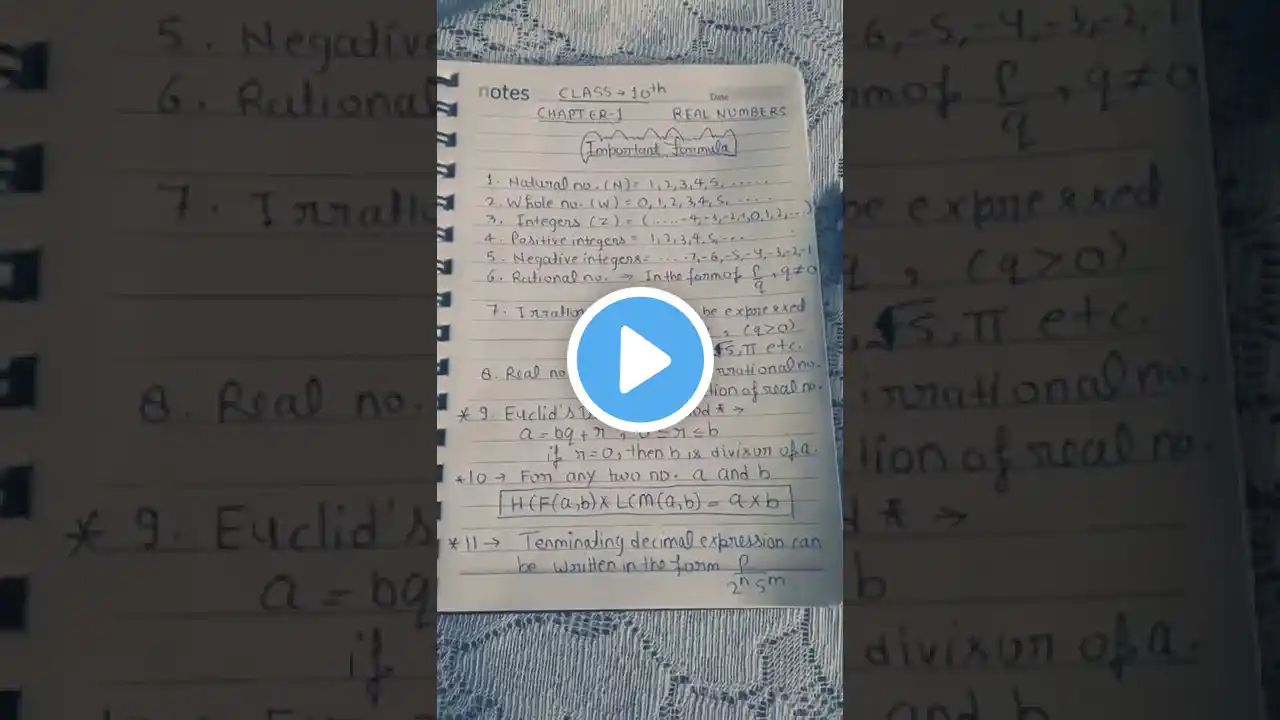 notes CLASS → 10th Date
CHAPTER-1 REAL NUMBERS
Important formula
1. Natural no. (N) = 1, 2, 3, 4, 5, ......
2. Whole no. (W) = 0, 1, 2, 3, 4, 5, ......
3. Integers (Z) = (.... -4, -3, -2, -1, 0, 1, 2, ...)
4. Positive integers = 1, 2, 3, 4, 5, ...
5. Negative integers = .... -7, -6, -5, -4, -3, -2, -1
6. Rational no. → In the form of p/q, q ≠ 0
7. be expressed
, (q>0)
√5, π etc.
8. Real no. irrational no.
of real no.
* 9. Euclid's * →
a = bq + r, ≤ r ≤ b
if r = 0, then b is divisor of a.
*10 → For any two no. a and b
HCF(a,b) X LCM(a,b) = a X b
*11 → Terminating decimal expression can
be written in the form p/2ⁿ5ᵐ